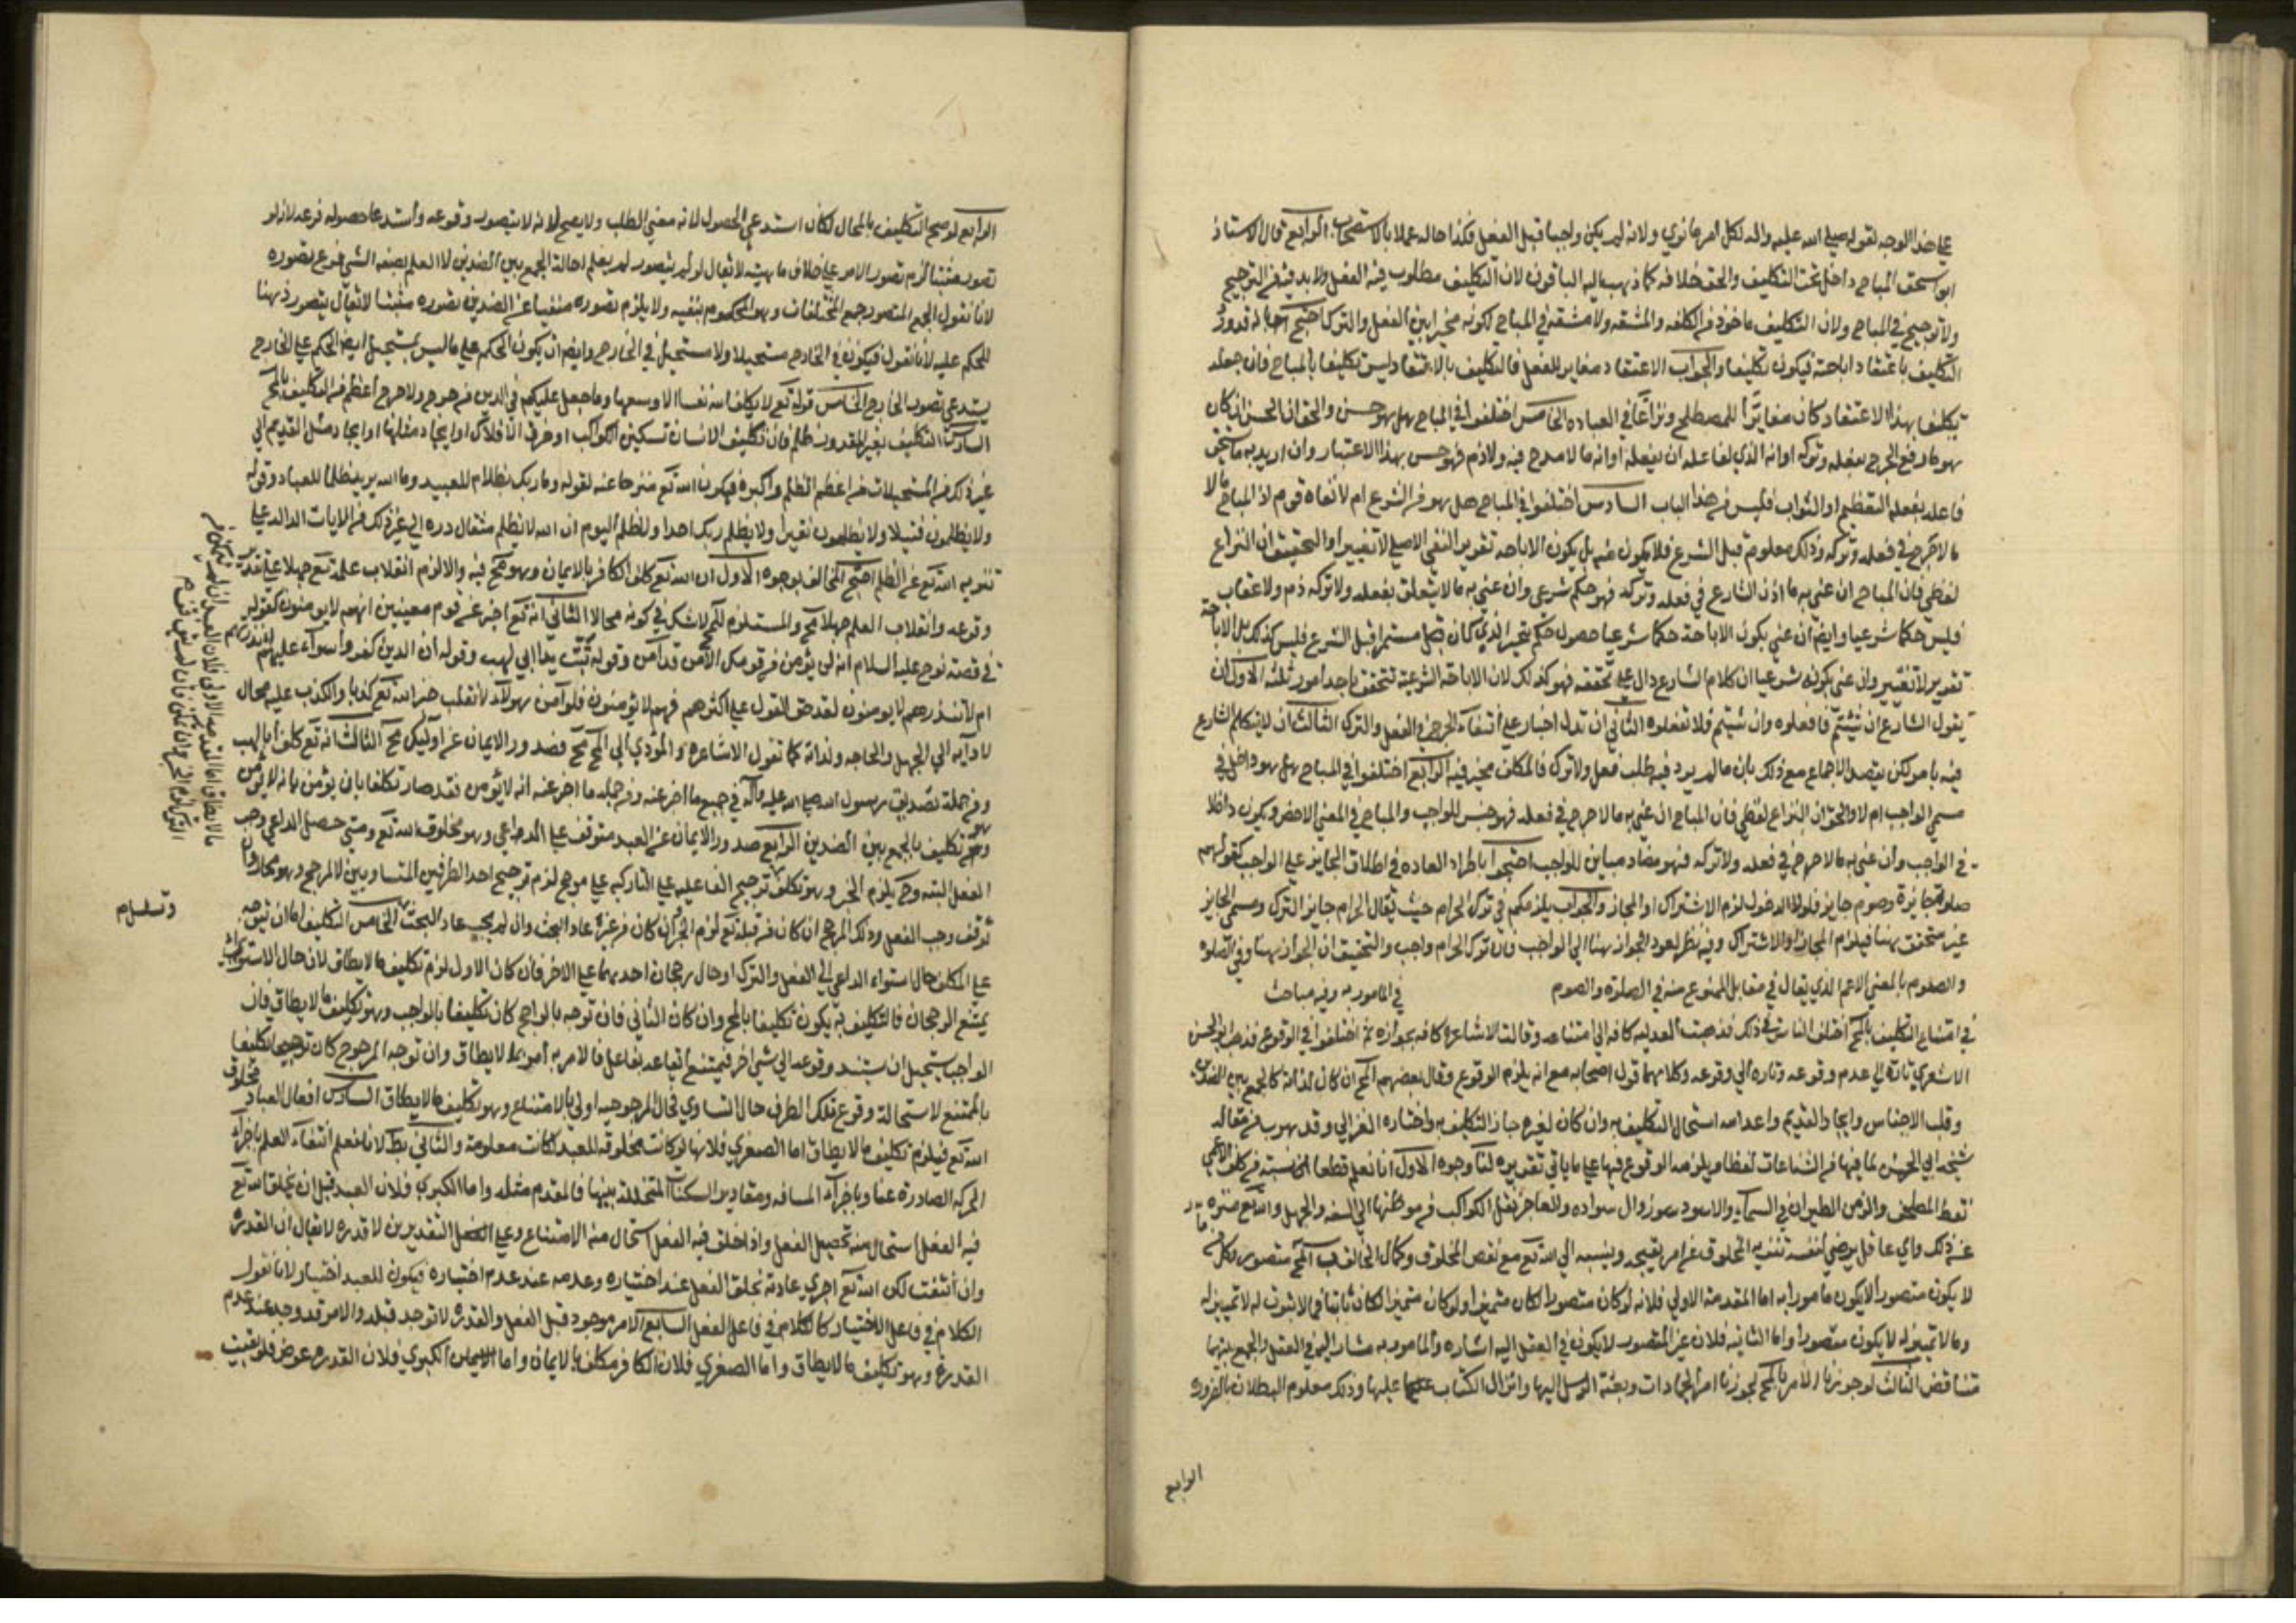 على هذا الوجه لقوله صلى الله عليه واله لكل امرء ما نوي ولانه لم يكن واجبا قبل الفعل فكذا حاله عملا بالاستصحاب الرابع قال الاستاذ
ابو اسحق المباح داخل تحت التكليف والحق خلافه كما ذهب اليه الباقون لان التكليف مطلوب فيه الفعل ولا بد فيه من الترجيح
ولا ترجيح في المباح ولان التكليف ماخوذ من الكلفه والمشقه ولا مشقه في المباح لكونه مخيرا بين الفعل والترك احتج بانه قد ورد
التكليف باعتقاد اباحته فيكون تكليفا والجواب الاعتقاد مغاير للفعل فالتكليف بالاعتقاد ليس تكليفا بالمباح فان جعله
تكليفا بهذا الاعتقاد كان مغايرا للمصطلح ونزاعا في العباده الخامس اختلفوا في المباح هل هو حسن والحق ان الحسن ان كان
هو ما رفع الحرج بفعله وتركه او انه الذي لفاعله ان يفعله او انه ما لا مدح فيه ولا ذم فهو حسن بهذا الاعتبار وان اريد به ما يستحق
فاعله بفعله التعظيم او الثواب فليس من هذا الباب السادس اختلفوا في المباح هل هو من الشرع ام لا نفاه قوم اذ المباح
ما لا حرج في فعله وتركه وذلك معلوم قبل الشرع فلا يكون منه بل يكون الاباحه تقرير النفي الاصلي لا تغييرا والتحقيق ان النزاع
لفظي فان المباح ان عني به ما اذن الشارع في فعله وتركه فهو حكم شرعي وان عني به ما لا يتعلق بفعله ولا تركه ذم ولا عقاب
فليس حكما شرعيا وايضا ان عني بكون الاباحة حكما شرعيا حصول حكم غير الذي كان قبل مستمرا قبل الشرع فليس كذلك بل الاباحة
تقرير لا تغيير وان عني بكونه شرعيا ان كلام الشارع دال على تحققه فهو كذلك لان الاباحة الشرعية تتحقق باحد امور ثلثه الاول ان
يقول الشارع ان شيتم فافعلوه وان شيتم فلا تفعلوه الثاني ان تدل اخبار على انتفاء الحرج في الفعل والترك الثالث ان لا يتكلم الشارع
فيه بامر لكن يتصل الاجماع مع ذلك بان ما لم يرد فيه طلب فعل ولا ترك فالمكلف مخير فيه الرابع اختلفوا في المباح هل هو داخل في
مسمي الواجب ام لا والحق ان النزاع لفظي فان المباح ان عني به ما لا حرج في فعله فهو جنس للواجب والمباح في المعني الاخص ويكون داخلا
في الواجب وان عني به ما لا حرج في فعله ولا تركه فهو مضاد مباين للواجب احتجوا باطراد العاده في اطلاق الجايز على الواجب كقولهم
صلوة جايزة وصوم جايز فلولا الدخول لزم الاشتراك او المجاز والجواب يلزمكم في ترك الحرام حيث يقال الحرام جايز الترك ومسمي الجايز
غير متحقق هنا فيلزم المجاز او الاشتراك وفيه نظر لعود الجواز هنا الي الواجب فان ترك الحرام واجب والتحقيق ان الجواز هنا وفي الصلوة
والصوم بالمعني الاعم الذي يقال في مقابل الممنوع منه في الصلوة والصوم في المامور به وفيه مباحث
في امتناع التكليف بالمحال اختلف الناس في ذلك فذهبت العدليه كافه الي امتناعه وقالت الاشاعرة كافه بجوازه ثم اختلفوا في الوقوع فذهب ابو الحسن
الاشعري تارة الي عدم وقوعه وتاره الي وقوعه وكلاهما قول اصحابه مع انه يلزم الوقوع وقال بعضهم المحال ان كان لذاته كالجمع بين الضدين
وقلب الاجناس وايجاد القديم واعدامه استحال التكليف به وان كان لغيره جاز التكليف به واختاره الغزالي وقد هرب من مقاله
شيخه ابي الحسن لما فيها من الشناعات لفظا ويلزمه الوقوع فيها على ما ياتي تقريره لنا وجوه الاول انا نعلم قطعا نسبة من كلف الاعمي
نقط المصاحف والزمن الطيران في السماء والاسود زوال سواده والعاجز نقل الكواكب من مواطنها الي السفه والجهل والله تع منزه
عن ذلك واي عاقل يرضي لنفسه تنزيه المخلوق عن امر يقبحه وينسبه الي الله تع مع نقص المخلوق وكمال الخالق المحال متصور
لا يكون متصورا لا يكون مامورا به اما المقدمة الاولي فلانه لو كان متصورا لكان متميزا ولو كان متميزا لكان ثابتا فما لا ثبوت له لا تميز له
وما لا تميز له لا يكون متصورا واما الثانيه فلان غير المتصور لا يكون في العقل اليه اشاره والمامور به مشار اليه في العقل والجمع بينهما
تناقض الثالث لو جوزنا الامر بالمحال لجوزنا امر الجمادات وبعثة الرسل اليها وانزال الكتاب عليها وذلك معلوم البطلان بالضروره
الرابع
الرابع لو صح التكليف بالمحال لكان استدعي الحصول لانه معني الطلب ولا يصح لانه لا يتصور وقوعه واستدعا حصوله فرعه لانه لو
تصور مثبتا لزم تصور الامر على خلاف ماهيته لا يقال لو لم يتصور لم يعلم احالة الجمع بين الضدين لان العلم بصفه الشي فرع تصوره
لانا نقول الجمع المتصور جمع المختلفات وهو المحكوم بنفيه ولا يلزم تصوره منفيا عن الضدين تصوره مثبتا لا يقال يتصور ذهنا
للحكم عليه لانا نقول فيكون في الخارج مستحيلا ولا مستحيل في الخارج وايضا ان يكون الحكم على ما ليس بمستحيل ايضا الحكم على الخارج
يستدعي تصور الخارج الخامس قوله تع لا يكلف الله نفسا الا وسعها وما جعل عليكم في الدين من حرج ولا حرج اعظم من التكليف بالمحال
السادس التكليف بغير المقدور ظلم فان تكليف الانسان تسكين الكواكب او خرق الافلاك او ايجاد مثلها او ايجاد مثل القديم الي
غير ذلك من المستحيلات من اعظم الظلم واكبره فيكون الله تع منزها عنه لقوله وما ربك بظلام للعبيد وما الله يريد ظلما للعباد وقوله
ولا يظلمون فتيلا ولا يظلمون نقيرا ولا يظلم ربك احدا ولا ظلم اليوم ان الله لا يظلم مثقال ذره الي غير ذلك من الايات الداله على
تنزيه الله تع عن الظلم احتج المخالف بوجوه الاول ان الله تع كلف الكافر بالايمان وهو محال فيه والا لزم انقلاب علمه تع جهلا على تقدير
وقوعه وانقلاب العلم جهلا محال والمستلزم للمحال لا شك في كونه محالا الثاني انه تع اخبر عن قوم معينين انهم لا يومنون كقوله
في قصة نوح عليه السلام انه لن يؤمن من قومك الا من قد امن وقوله تبت يدا ابي لهب وقوله ان الذين كفروا سواء عليهم ءانذرتهم
ام لم تنذرهم لا يومنون لقد حق القول على اكثرهم فهم لا يؤمنون فلو آمن هولاء لانقلب خبر الله تع كذبا والكذب عليه محال
لادايه الي الجهل والحاجه ولذاته كما تقول الاشاعره والمؤدي الي المحال محال فصدور الايمان عن اوليك محال الثالث انه تع كلف ابا لهب
ومن جملة تصديق رسول الله صلى الله عليه وآله في جميع ما اخبر عنه ومن جمله ما اخبر عنه انه لا يؤمن فقد صار مكلفا بان يؤمن بانه لا يؤمن
وهو تكليف بالجمع بين الضدين الرابع صدور الايمان عن العبد متوقف على الداعي وهو مخلوق لله تع ومتي حصل الداعي وجب
الفعل البته وح يلزم الجبر وهو تكلف ترجيح الفاعليه على التاركيه على مرجح لزم ترجيح احد الطرفين المتساويين لا لمرجح وهو محال وان
توقف وجب الفعل وذلك المرجح ان كان من قبله تع لزم الجبر وان كان من غيره عاد البحث وان لم يجب عاد البحث الخامس التكليف اما ان يتوجه
على المكلف حال استواء الداعي الي الفعل والترك او حال رجحان احدهما على الاخر فان كان الاول لزم تكليف ما لا يطاق لان حال الاستواء
يمتنع الرجحان فالتكليف به يكون تكليفا بالمحال وان كان الثاني فان توجه بالراجح كان تكليفا بالواجب وهو تكليف ما لا يطاق فان
الواجب يستحيل ان يستند وقوعه الي شي اخر فيمتنع ايقاعه بفاعل فالامر به امر بما لا يطاق وان توجه المرجوح كان توجيها تكليفا
بالممتنع لاستحالة وقوع تلك الطرف حال التساوي فحال المرجوحيه اولي بالامتناع وهو تكليف ما لا يطاق السادس افعال العباد مخلوق
الله تع فيلزم تكليف ما لا يطاق اما الصغري فلانها لو كانت مخلوقه للعبد لكانت معلومة والثاني بط لانا نعلم انتفاء العلم باجزاء
الحركه الصادرة عنا وباجزاء المسافه ومقادير السكنات المتخلله بينها فالمقدم مثله واما الكبري فلان العبد قبل ان يخلق الله تع
فيه الفعل استحال منه تحصيل الفعل واذا خلق فيه الفعل استحال منه الامتناع وعلى التقديرين لا قدره لا يقال ان القدره
وان انتفت لكن الله تع اجري عادته بخلق الفعل عند اختياره وعدمه عند عدم اختياره فيكون للعبد اختيار لانا نقول
الكلام في فاعل الاختيار كالكلام في فاعل الفعل السابع الامر موجود قبل الفعل والقدره لا توجد قبله والامر قد وجد عند عدم
القدرة وهو تكليف ما لا يطاق واما الصغري فلان الكافر مكلف بالايمان واما الكبري فلان القدره عرض فلو بقيت
وتسلسل